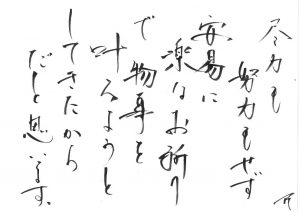 尽力も
努力もせず
安易に
楽なお祈り
で物事を
叶えようと
してきたから
だと思います。